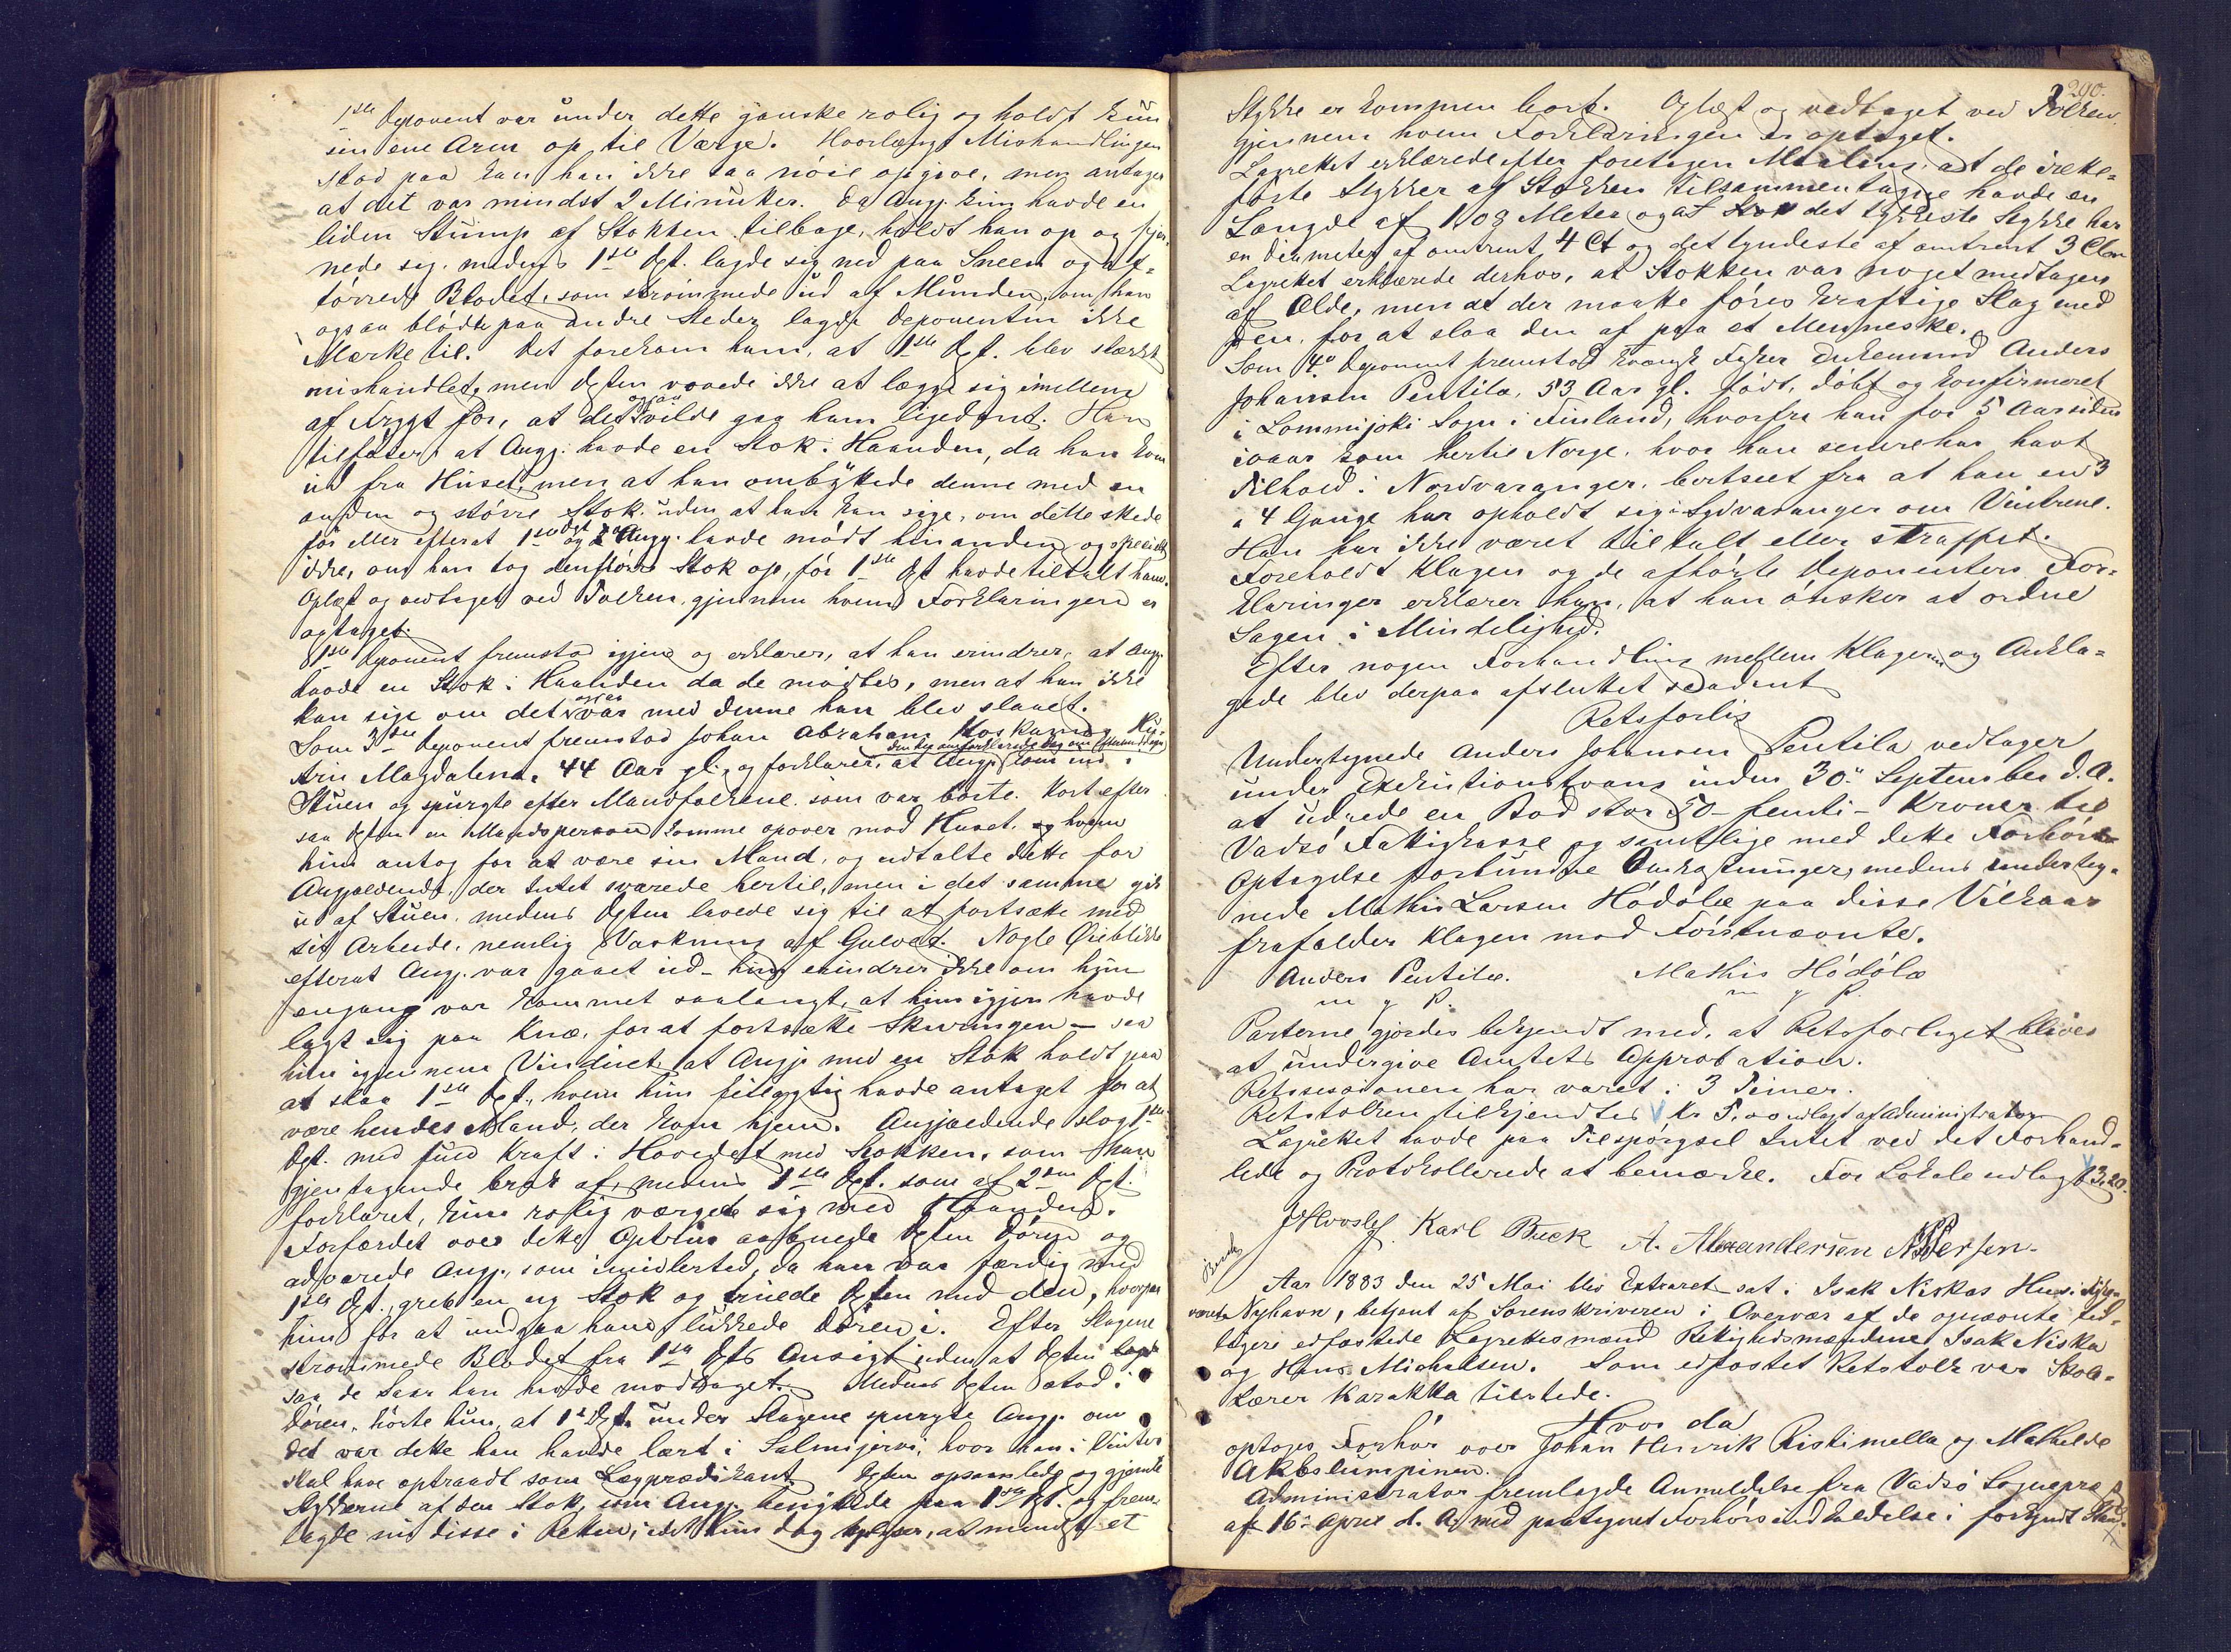 1ste Deponent var under dette ganske rolig og holdt kun
sin ene Arm op til Værge. Hvorlængt Mishandlingen
stod paa kan han ikke saa nöie opgive, men antager
at det var mindst 2 Minutter. Da Angj. kun havde en
liden Stump af Stokken tilbage, holdt han op og fjer-
nede sig, medens 1ste Dpt. lagde sig ned paa Sneen og af-
törrede Blodet, som strömmede ud af Munden; om han
ogsaa blödte paa andre Steder lagde Deponenten ikke
Mærke til. Det forekom ham, at 1ste Dpt. blev stærkt
mishandlet, men Dpten vovede ikke at lægge sig imellem
af Frygt for, at det ogsaa vilde gaa ham ligedant. Han
tilföier at Angj. havde en Stok i Haanden, da han kom
ud fra Huset, men at han ombyttede denne med en
anden og större Stok, uden at han kan sige, om dette skede
för eller efterat 1ste Dpt og Angj. havde mödt hinanden og specielt
ikke, om han tog den större Stok op, för 1ste Dpt havde tiltalt ham.
Oplæst og vedtaget ved Tolken, gjennem hvem Forklaringen er
optaget.
1ste Deponent fremstod igjen og erklærer, at han erindrer, at Angj.
havde en Stok i Haanden da de mödtes, men at han ikke
kan sige om det ogsaa var med denne han blev slaaet.
Som 3die Deponent fremstod Johan Abraham Koskamos Hu-
stru Magdalena, 44 Aar gl., og forklarer, at Angj. kom ind i
Stuen og spurgte efter Mandfolkene, som var borte. Kort efter
saa Dpten en Mandsperson komme opover mod Huset, og hvem
hun antog for at være sin Mand, og udtalte dette for
Angjældende, der Intet svarede hertil, men i det samme gik
ud af Stuen, medens Dpten lavede sig til at fortsætte med
sit Arbeide, nemlig Vaskning af Gulvet. Nogle Øieblikke
efterat Angj. var gaaet ud – hun erindrer ikke om hun
engang var kommet saalangt, at hun igjen havde
lagt sig paa Knæ, for at fortsætte Skuringen – saa
hun igjennem Vinduet, at Angj. med en Stok holdt paa
at slaa 1ste Dpt., hvem hun feilagtig havde antaget for at
være hendes Mand, der kom hjem. Angjældende slog 1ste
Dpt. med fuld Kraft i Hovedet med Stokken, som han
gjentagende brak af, medens 1ste Dpt. som af 2den Dpt.
forklaret, kun rolig værgede sig med Haanden.
Forfærdet over dette Optrin aabnede Dpten Dören og
advarede Angj., som imidlertid, da han var færdig med
1ste Dpt., greb en ny Stok og truede Dpten med den, hvorpaa
hun for at undgaa ham lukkede Dören i. Efter Slagene
strömmede Blodet fra 1ste Dpts Ansigt uden at Dpten
saa de Saar han havde modtaget. Medens Dpten stod i
Dören, hörte hun, at 1ste Dpt. under Slagene spurgte Angj. om
det var dette han havde lært i Salmijervi, hvor han i Vinter
skal have optraadt som Lægprædikant. Dpten opsamlede og gjemte
Stykkerne af den Stok, som Angj. benyttede paa 1ste Dpt. og frem-
lagde nu disse i Retten, idet hun dog oplyser, at mindst et
290.
Stykke er kommen bort. Oplæst og vedtaget ved Tolken,
gjennem hvem Forklaringen er optaget.
Lagrettet erklærede efter foretagen Maaling, at de irette-
förte Stykker af Stokken tilsammentagne havde en
Længde af 1,03 Meter og at det tykkeste Stykke har
en Diameter af omtrent 4 Ct og det tyndeste af omtrent 3 Ctm
Lagrettet erklærede derhos, at Stokken var noget medtagen
af Ælde, men at der maatte föres kraftige Slag med
den, for at slaa den af paa et Menneske.
Som 4° Deponent fremstod kvænsk Fisker Enkemand Anders
Johansen Pentila, 53 Aar gl. födt, döbt og konfirmeret
i Lommijoki Sogn i Finland, hvorfra han for 5 Aar siden
ivaar kom hertil Norge, hvor han senere har havt
Tilhold i Nordvaranger, bortseet fra at han en 3
a 4 Gange har opholdt sig i Sydvaranger om Vintrene.
Han har ikke været tiltalt eller straffet.
Foreholdt Klagen og de afhörte Deponenters For-
klaringer erklærer han, at han önsker at ordne
Sagen i Mindelighed.
Efter nogen Forhandling mellem Klageren og Ankla-
gede blev derpaa afsluttet saadant
Retsforlig
Undertegnede Anders Johansen Pentila vedtager
under Exekutionstvang inden 30te September d. A.
at udrede en Bod stor 50 – femti – Kroner til
Vadsö Fattigkasse og samtlige med dette Forhörs
Optagelse forbundne Omkostninger, medens underteg-
nede Mathis Larsen Hödölæ paa disse Vilkaar
frafalder Klagen mod Förstnævnte.
Anders Pentilæ. Mathis Hödölæ
m p P. m p P.
Parterne gjordes bekjendt med, at Retsforliget bliver
at undergive Amtets Approbation.
Retssessionen har varet i 3 Timer.
Retstolken tilkjendtes Kr udlagt af Administrator
Lagrettet havde paa Tilspörgsel Intet ved det Forhand-
lede og Protokollerede at bemærke. For Lokale udlagt 3,20.
JHvoslef. Karl Buck A. Alexandersen
Aar 1883 den 25 Mai blev Extraret sat i Isak Niskas Hus i
Nyhavn, betjent af Sorenskriveren i Overvær af de opnævnte tid-
ligere edfæstede Lagrettesmænd Rettighedsmændene Isak Niska
og Hans Michelsen. Som edfæstet Retstolk var Skole-
lærer Karakka tilstede.
Hvor da
optoges Forhör over Johan Henrik Ristimella og Mathilde
Akislumpinen.
Administrator fremlagde Anmeldelse fra Vadsö Sognepræst
af 16de April d. A. med paategnet Forhörsindkaldelse i forkyndt Stand.